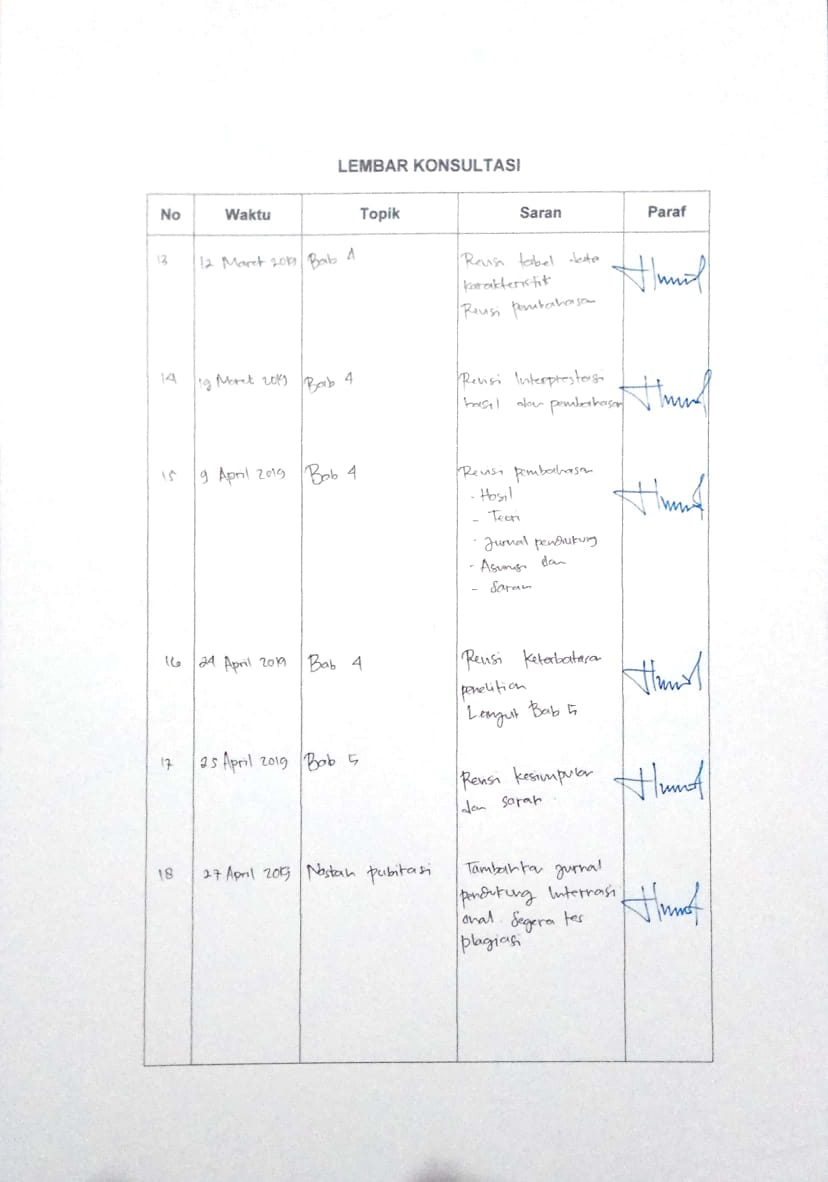 LEMBAR KONSULTASI
No Waktu Topik Saran Paraf
13 12 Maret 2019 Bab 4 Revisi tabel data
karakteristik
Revisi pembahasan
14 19 Maret 2019 Bab 4 Revisi Interprestasi
hasil dan pembahasan
15 9 April 2019 Bab 4 Revisi pembahasan
- Hasil
- Teori
- Jurnal pendukung
- Asumsi dan
- Saran
16 24 April 2019 Bab 4 Revisi keterbatasa
penelitian
Lanjut Bab 5
17 25 April 2019 Bab 5
Revisi kesimpulan
dan saran
18 27 April 2019 Naskah publikasi Tambahka jurnal
pendukung Internasi
onal. Segera tes
plagiasi